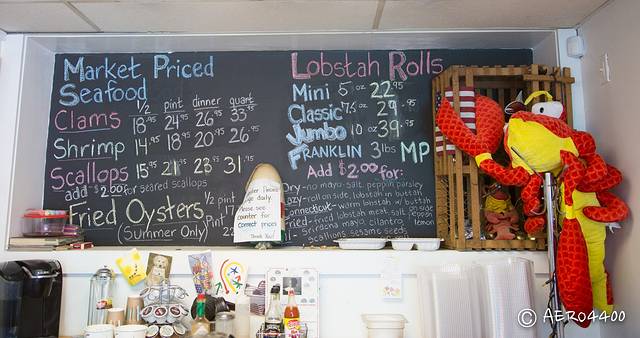 Market Priced
Seafood
1/2 pint dinner quart
Clams 18.95 24.95 26.95 33.95
Shrimp 14.95 18.95 20.95 26.95
Scallops 15.95 21.95 23.95 31.95
add $2.00 for seared scallops
Fried Oysters 1/2 pint
(Summer Only)
prices
daily.
Please see
counter for
correct prices
Thank You!
Lobstah Rolls
Mini 5 oz 22.95
Classic 7.5 oz 29.95
Jumbo 10 oz 39.95
Franklin 3 lbs MP
Add $2.00 for:
no mayo salt pepper parsley
roll on side lobstah in buttah
warm lobstah w/ buttah
Fried lobstah meat salt pepper
sriracha mayo cilantro lemon
scallions sesame seeds
© AERO4400